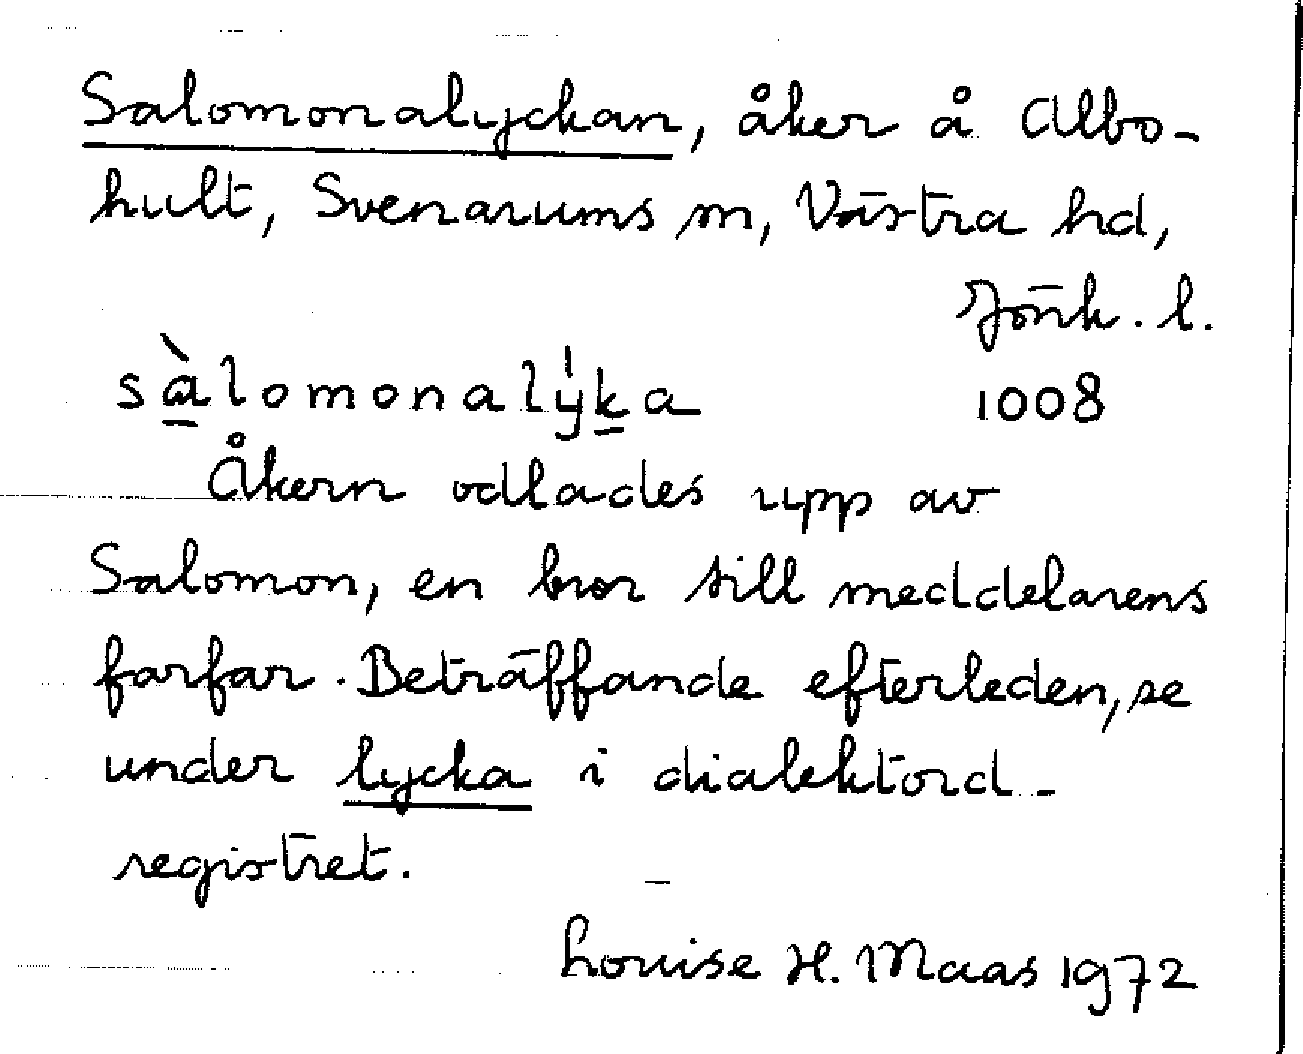 Salomonalyckan, åker å Albo-
hult, Svenarums sn, Västra hd,
Jönk. l.
sàlomonalýka 1008
Åkern odlades upp av
Salomon, en bror till meddelarens
farfar. Beträffande efterleden, se
under lycka i dialektord-
registret.
Louise H. Maas 1972